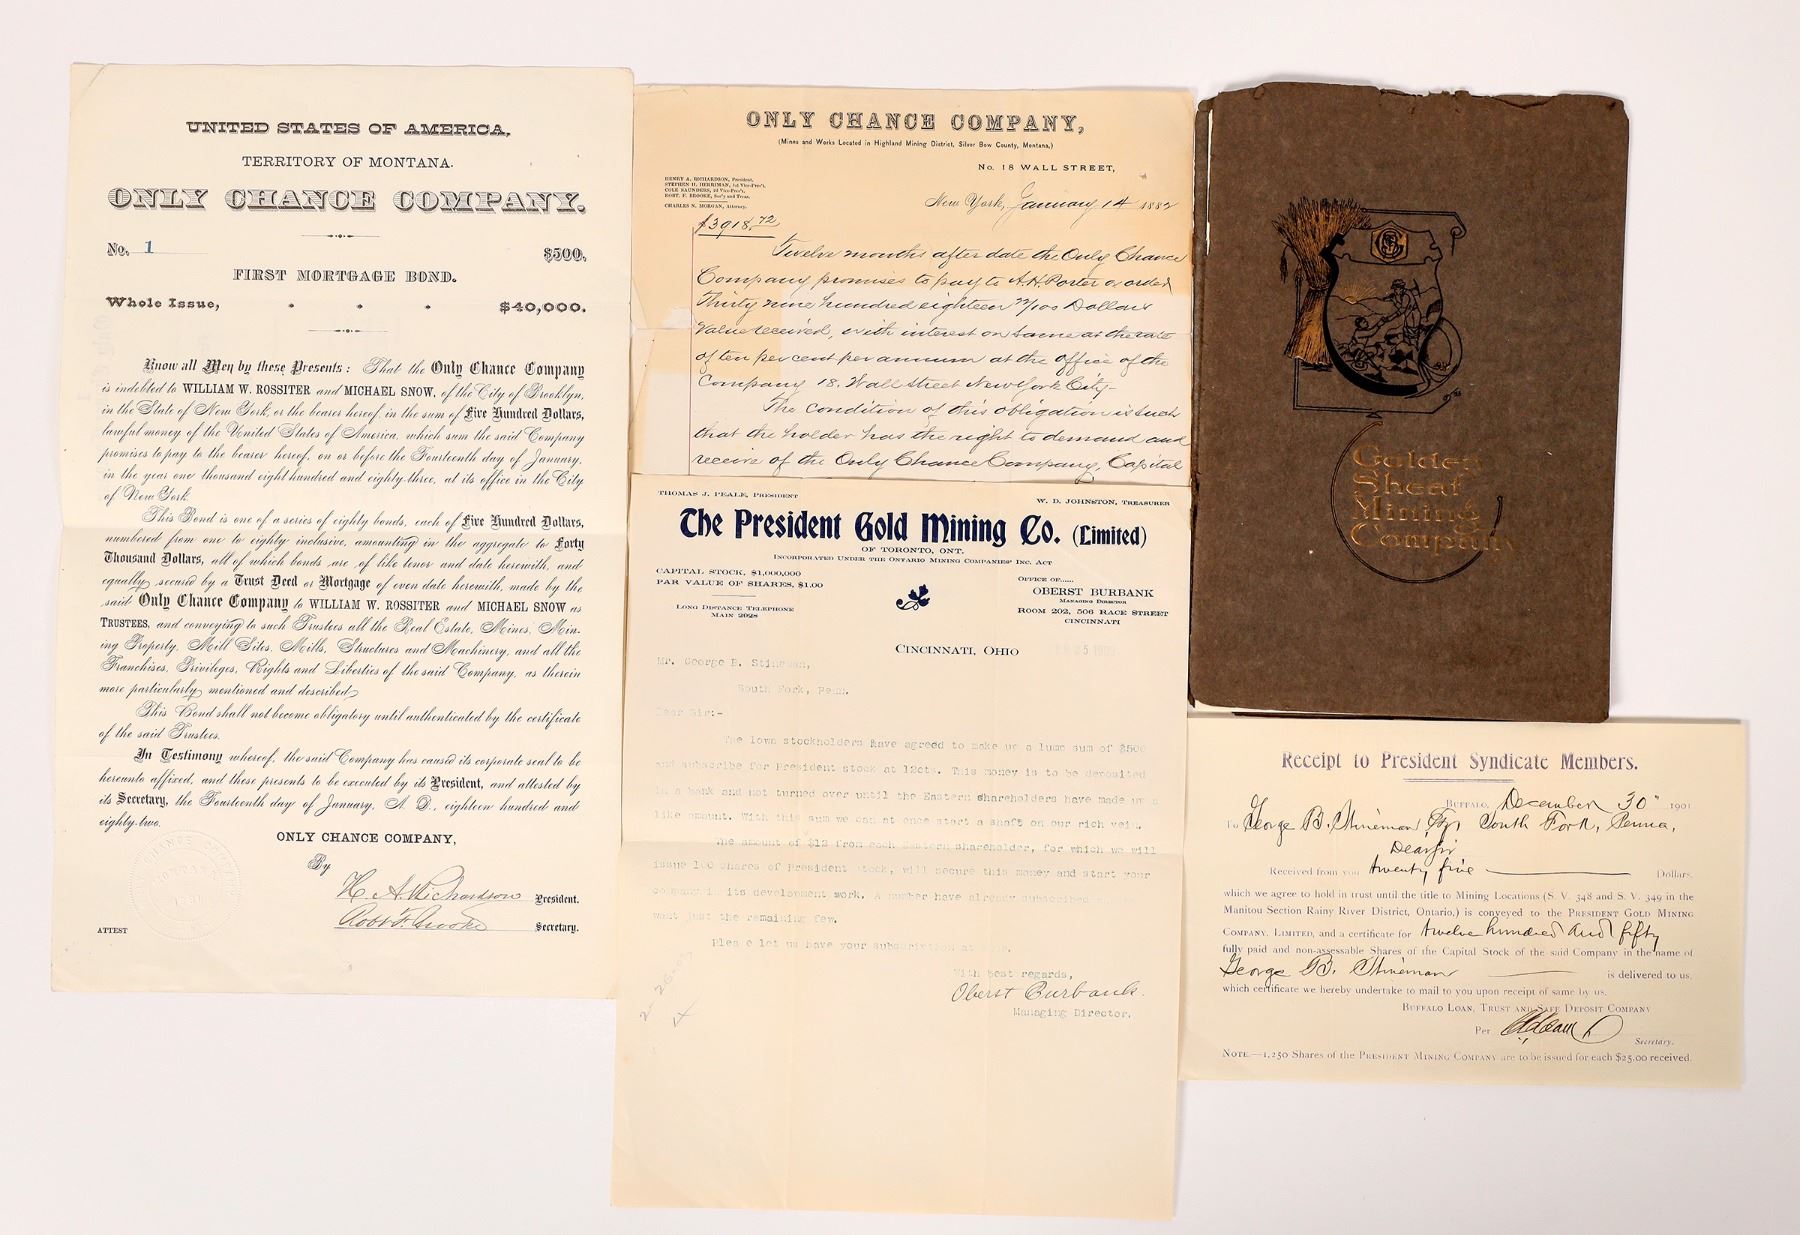 UNITED STATES OF AMERICA,
TERRITORY OF MONTANA.
ONLY CHANCE COMPANY.
No. 1 $500.
FIRST MORTGAGE BOND.
Whole Issue, $40,000.
Know all Men by these Presents: That the Only Chance Company
is indebted to WILLIAM W. ROSSITER and MICHAEL SNOW, of the City of Brooklyn,
in the State of New York, or the bearer hereof, in the sum of Five Hundred Dollars,
lawful money of the United States of America, which sum the said Company
promises to pay to the bearer hereof, on or before the Fourteenth day of January,
in the year one thousand eight hundred and eighty-three, at its office in the City
of New York.
This Bond is one of a series of eighty bonds, each of Five Hundred Dollars,
numbered from one to eighty inclusive, amounting in the aggregate to Forty
Thousand Dollars, all of which bonds are of like tenor and date herewith, and
equally secured by a Trust Deed or Mortgage of even date herewith, made by the
said Only Chance Company to WILLIAM W. ROSSITER and MICHAEL SNOW as
TRUSTEES, and conveying to such Trustees all the Real Estate, Mines, Min-
ing Property, Mill Sites, Mills, Structures and Machinery, and all the
Franchises, Privileges, Rights and Liberties of the said Company, as therein
more particularly mentioned and described.
This Bond shall not become obligatory until authenticated by the certificate
of the said Trustees.
In Testimony whereof, the said Company has caused its corporate seal to be
hereunto affixed, and these presents to be executed by its President, and attested by
its Secretary, the Fourteenth day of January, A. D., eighteen hundred and
eighty-two.
ONLY CHANCE COMPANY,
By
H. A. Richardson President.
Robt F. Brooke Secretary.
ATTEST
ONLY CHANCE COMPANY,
(Mines and Works Located in Highland Mining District, Silver Bow County, Montana,)
No. 18 WALL STREET,
HENRY A. RICHARDSON, President,
STEPHEN H. HERRIMAN, 1st Vice-Pres't,
COLE SAUNDERS, 2d Vice-Pres't,
ROBT. F. BROOKE, Sec'y and Treas.
CHARLES N. MORGAN, Attorney.
New York, January 14 1882
$3918.72
Twelve months after date the Only Chance
Company promises to pay to A. H. Porter or order
Thirty nine hundred eighteen 72/100 Dollars
Value received, with interest on same at the rate
of ten per cent per annum at the office of the
Company 18, Wall Street New York City-
The condition of this obligation is such
that the holder has the right to demand and
receive of the Only Chance Company, Capital
THOMAS J. PEALE, PRESIDENT W. D. JOHNSTON, TREASURER
The President Gold Mining Co. (Limited)
OF TORONTO, ONT.
INCORPORATED UNDER THE ONTARIO MINING COMPANIES' INC. ACT
CAPITAL STOCK, $1,000,000
PAR VALUE OF SHARES, $1.00
LONG DISTANCE TELEPHONE
MAIN 2028
OFFICE OF......
OBERST BURBANK
MANAGING DIRECTOR
ROOM 202, 506 RACE STREET
CINCINNATI
CINCINNATI, OHIO
Mr. George B. Stineman,
South Fork, Penn.
Dear Sir:-
The Iowa stockholders have agreed to make up a lump sum of $500
and subscribe for President stock at 12cts. This money is to be deposited
in a bank and not turned over until the Eastern shareholders have made up a
like amount. With this sum we can at once start a shaft on our rich vein.
The amount of $12 from each Eastern shareholder, for which we will
issue 100 shares of President stock, will secure this money and start your
company in its development work. A number have already subscribed
want just the remaining few.
Please let us have your subscription at
With best regards,
Oberst Burbank.
Managing Director.
2-26-03
Golden
Sheaf
Mining
Company
Receipt to President Syndicate Members.
BUFFALO, December 30" 1901
To George B. Stineman South Fork, Penna,
Dear Sir
Received from you twenty five Dollars,
which we agree to hold in trust until the title to Mining Locations (S. V. 348 and S. V. 349 in the
Manitou Section Rainy River District, Ontario,) is conveyed to the PRESIDENT GOLD MINING
COMPANY, LIMITED, and a certificate for twelve hundred and fifty
fully paid and non-assessable Shares of the Capital Stock of the said Company in the name of
George B. Stineman is delivered to us,
which certificate we hereby undertake to mail to you upon receipt of same by us.
BUFFALO LOAN, TRUST AND SAFE DEPOSIT COMPANY
Per
Secretary.
NOTE.—1,250 Shares of the PRESIDENT MINING COMPANY are to be issued for each $25.00 received.